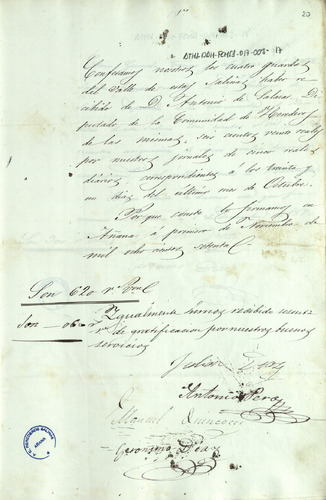 20
ATHA-DAH-FCHES-017-008-17
Confesamos nosotros los cuatro guardas
del Valle de estas Salinas haber re-
cibido de D. Antonio de Salazar Di-
putado de la Comunidad de Herederos
de las mismas, seis cientos veinte reales
por nuestros jornales de cinco reales
diarios correspondientes á los treinta y
un dias del último mes de Octubre.
Por que conste lo firmamos en
Añana á primero de Noviembre de
mil ocho cientos setenta
Son 620 rs
Son 06 rs
Igualmente hemos recibido
rs de gratificacion por nuestros buenos
servicios
Julian Diaz
Antonio Perez
Manuel
Geronimo Diaz
AÑANA